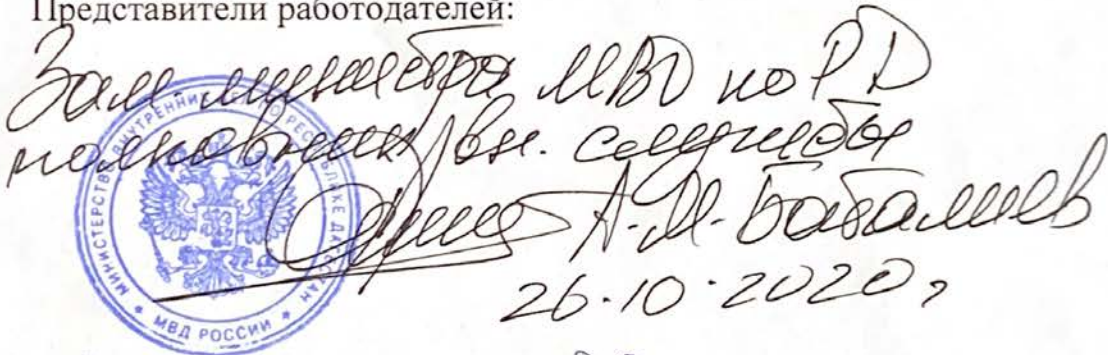 Представители работодателей:
Зам. министра МВД по РД
полковник вн. службы
А.М. Баталиев
26.10.2020 г
МИНИСТЕРСТВО ВНУТРЕННИХ ДЕЛ ПО РЕСПУБЛИКЕ ДАГЕСТАН
* МВД РОССИИ *